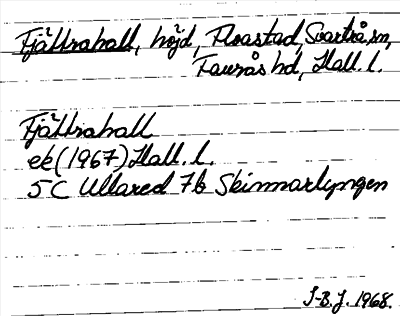 Fjällrahall, höjd, Floastad, Svartrå sn,
Faurås hd, Hall. l.
Fjällrahall
ek (1967) Hall. l.
5C Ullared 7b Skinnarlyngen
J-B.J. 1968.